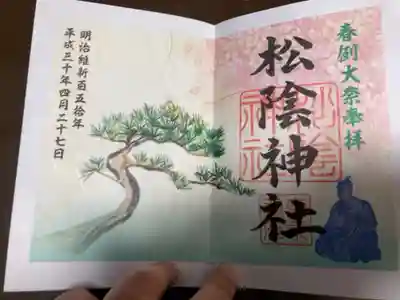 春例大祭奉拝
松陰神社
明治維新百五拾年
平成三十年四月二十七日